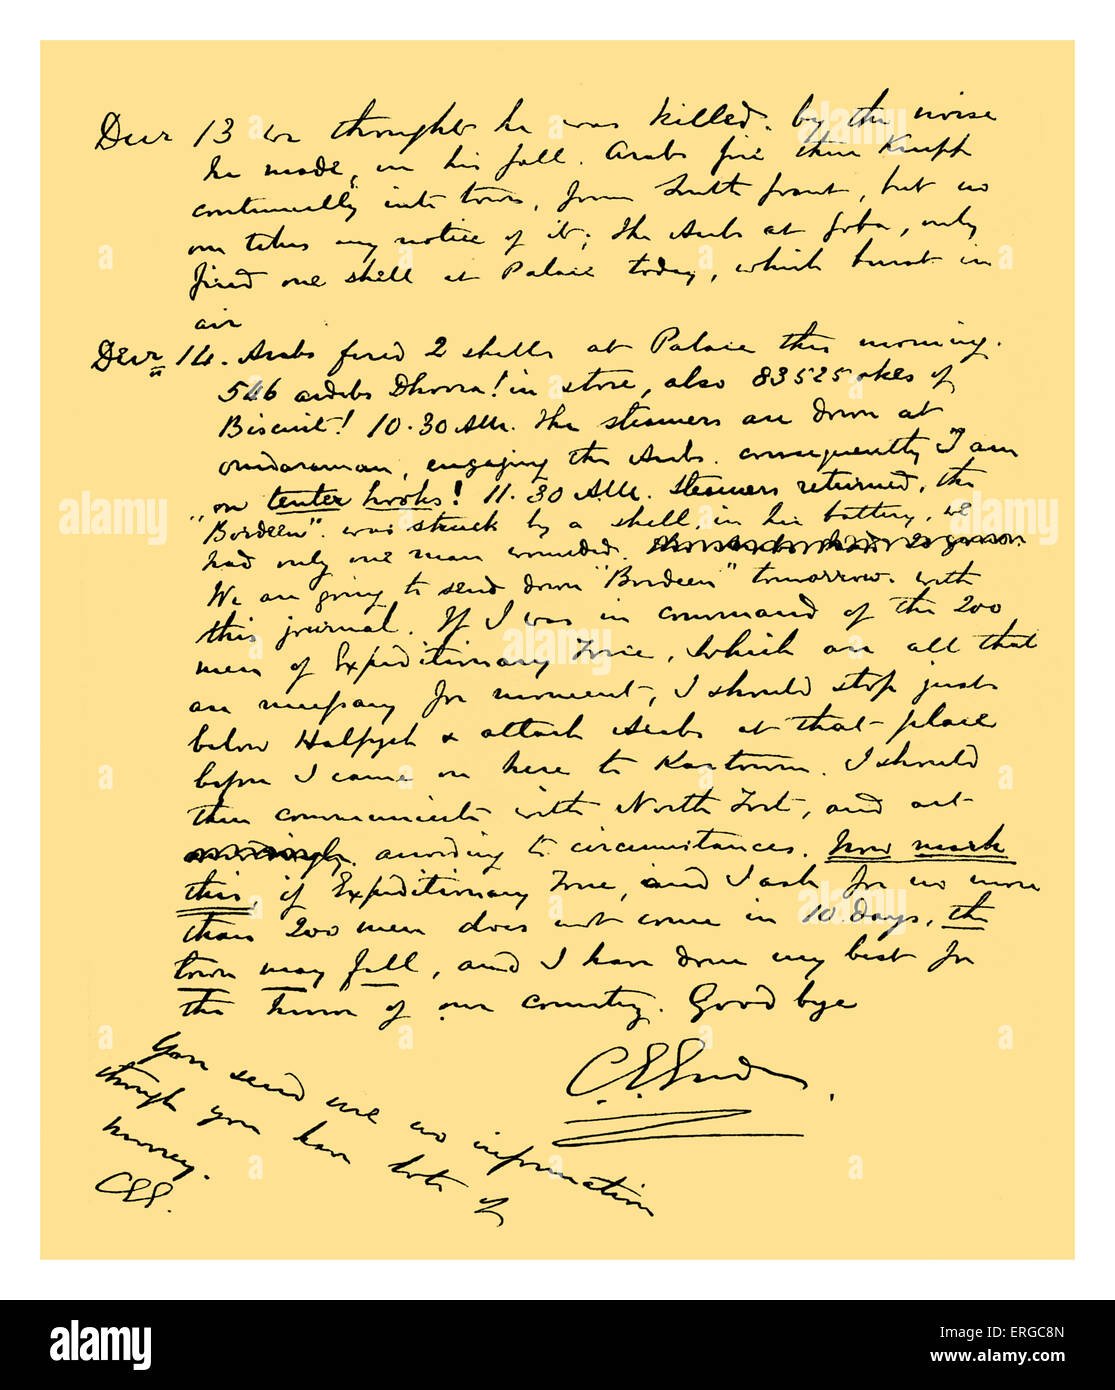 Decr 13 we thought he was killed, by the noise
he made, in his fall. Arabs fire their Krupp
continually into town, from South front, but no
one takes any notice of it; The Arabs at Goba, only
fired one shell at Palace today, which burst in
air
Decr 14. Arabs fired 2 shells at Palace this morning.
546 ardebs Dhoora! in store, also 83525 okes of
Biscuit! 10.30 AM. The steamers are down at
Omdaraman, engaging the Arabs. consequently I am
on tenter hooks! 11.30 AM. Steamers returned, the
"Bordeen" was struck by a shell, in her battery, we
had only one man wounded.
We are going to send down "Bordeen" tomorrow. with
this journal. If I was in command of the 200
men of Expeditionary Force, which are all that
are necessary for moment, I should stop just
below Halfyeh & attack Arabs at that place
before I came on here to Kartoum. I should
then communicate with North Fort, and act
according to circumstances. Now mark
this, if Expeditionary Force, and I ask for no more
than 200 men does not come in 10 days, the
town may fall, and I have done my best for
the honor of our country. Good bye
C. G. Gordon.
You send me no information
though you have lots of
money.
CGG.
alamy
a
alamy
Image ID: ERGC8N
www.alamy.com